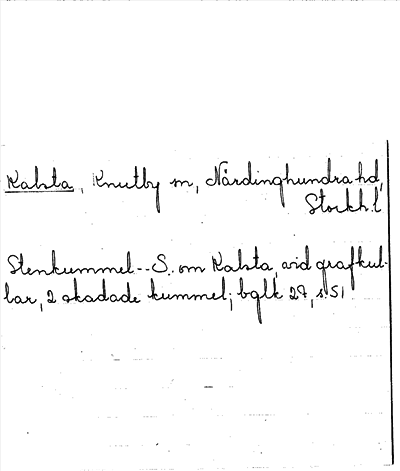 Kalsta, Knutby sn, Närdinghundra hd,
Stockh.l
Stenkummel -- S. om Kalsta, vid grafkul-
lar, 2 skadade kummel; bglk 27, s. 51.